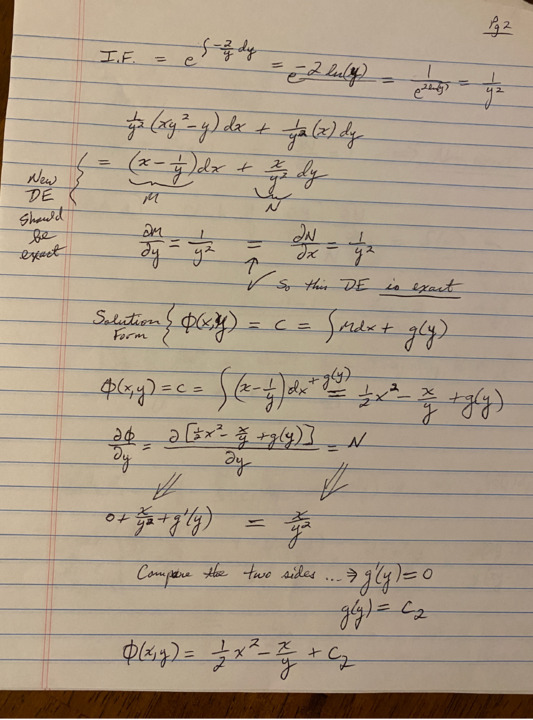 Pg 2
I.F. = e^{∫ -2/y dy} = e^{-2 ln(y)} = 1/e^{2 ln(y)} = 1/y²
1/y² (xy² - y) dx + 1/y² (x) dy
New DE should be exact { = (x - 1/y) dx + x/y² dy
M N
∂M/∂y = 1/y² = ∂N/∂x = 1/y²
↑ ✓ So this DE is exact
Solution Form { Φ(x,y) = C = ∫ M dx + g(y)
Φ(x,y) = C = ∫ (x - 1/y) dx + g(y) = 1/2 x² - x/y + g(y)
∂Φ/∂y = ∂[1/2 x² - x/y + g(y)]/∂y = N
⇓ ⇓
0 + x/y² + g'(y) = x/y²
Compare the two sides ... ⇒ g'(y) = 0
g(y) = C₂
Φ(x,y) = 1/2 x² - x/y + C₂